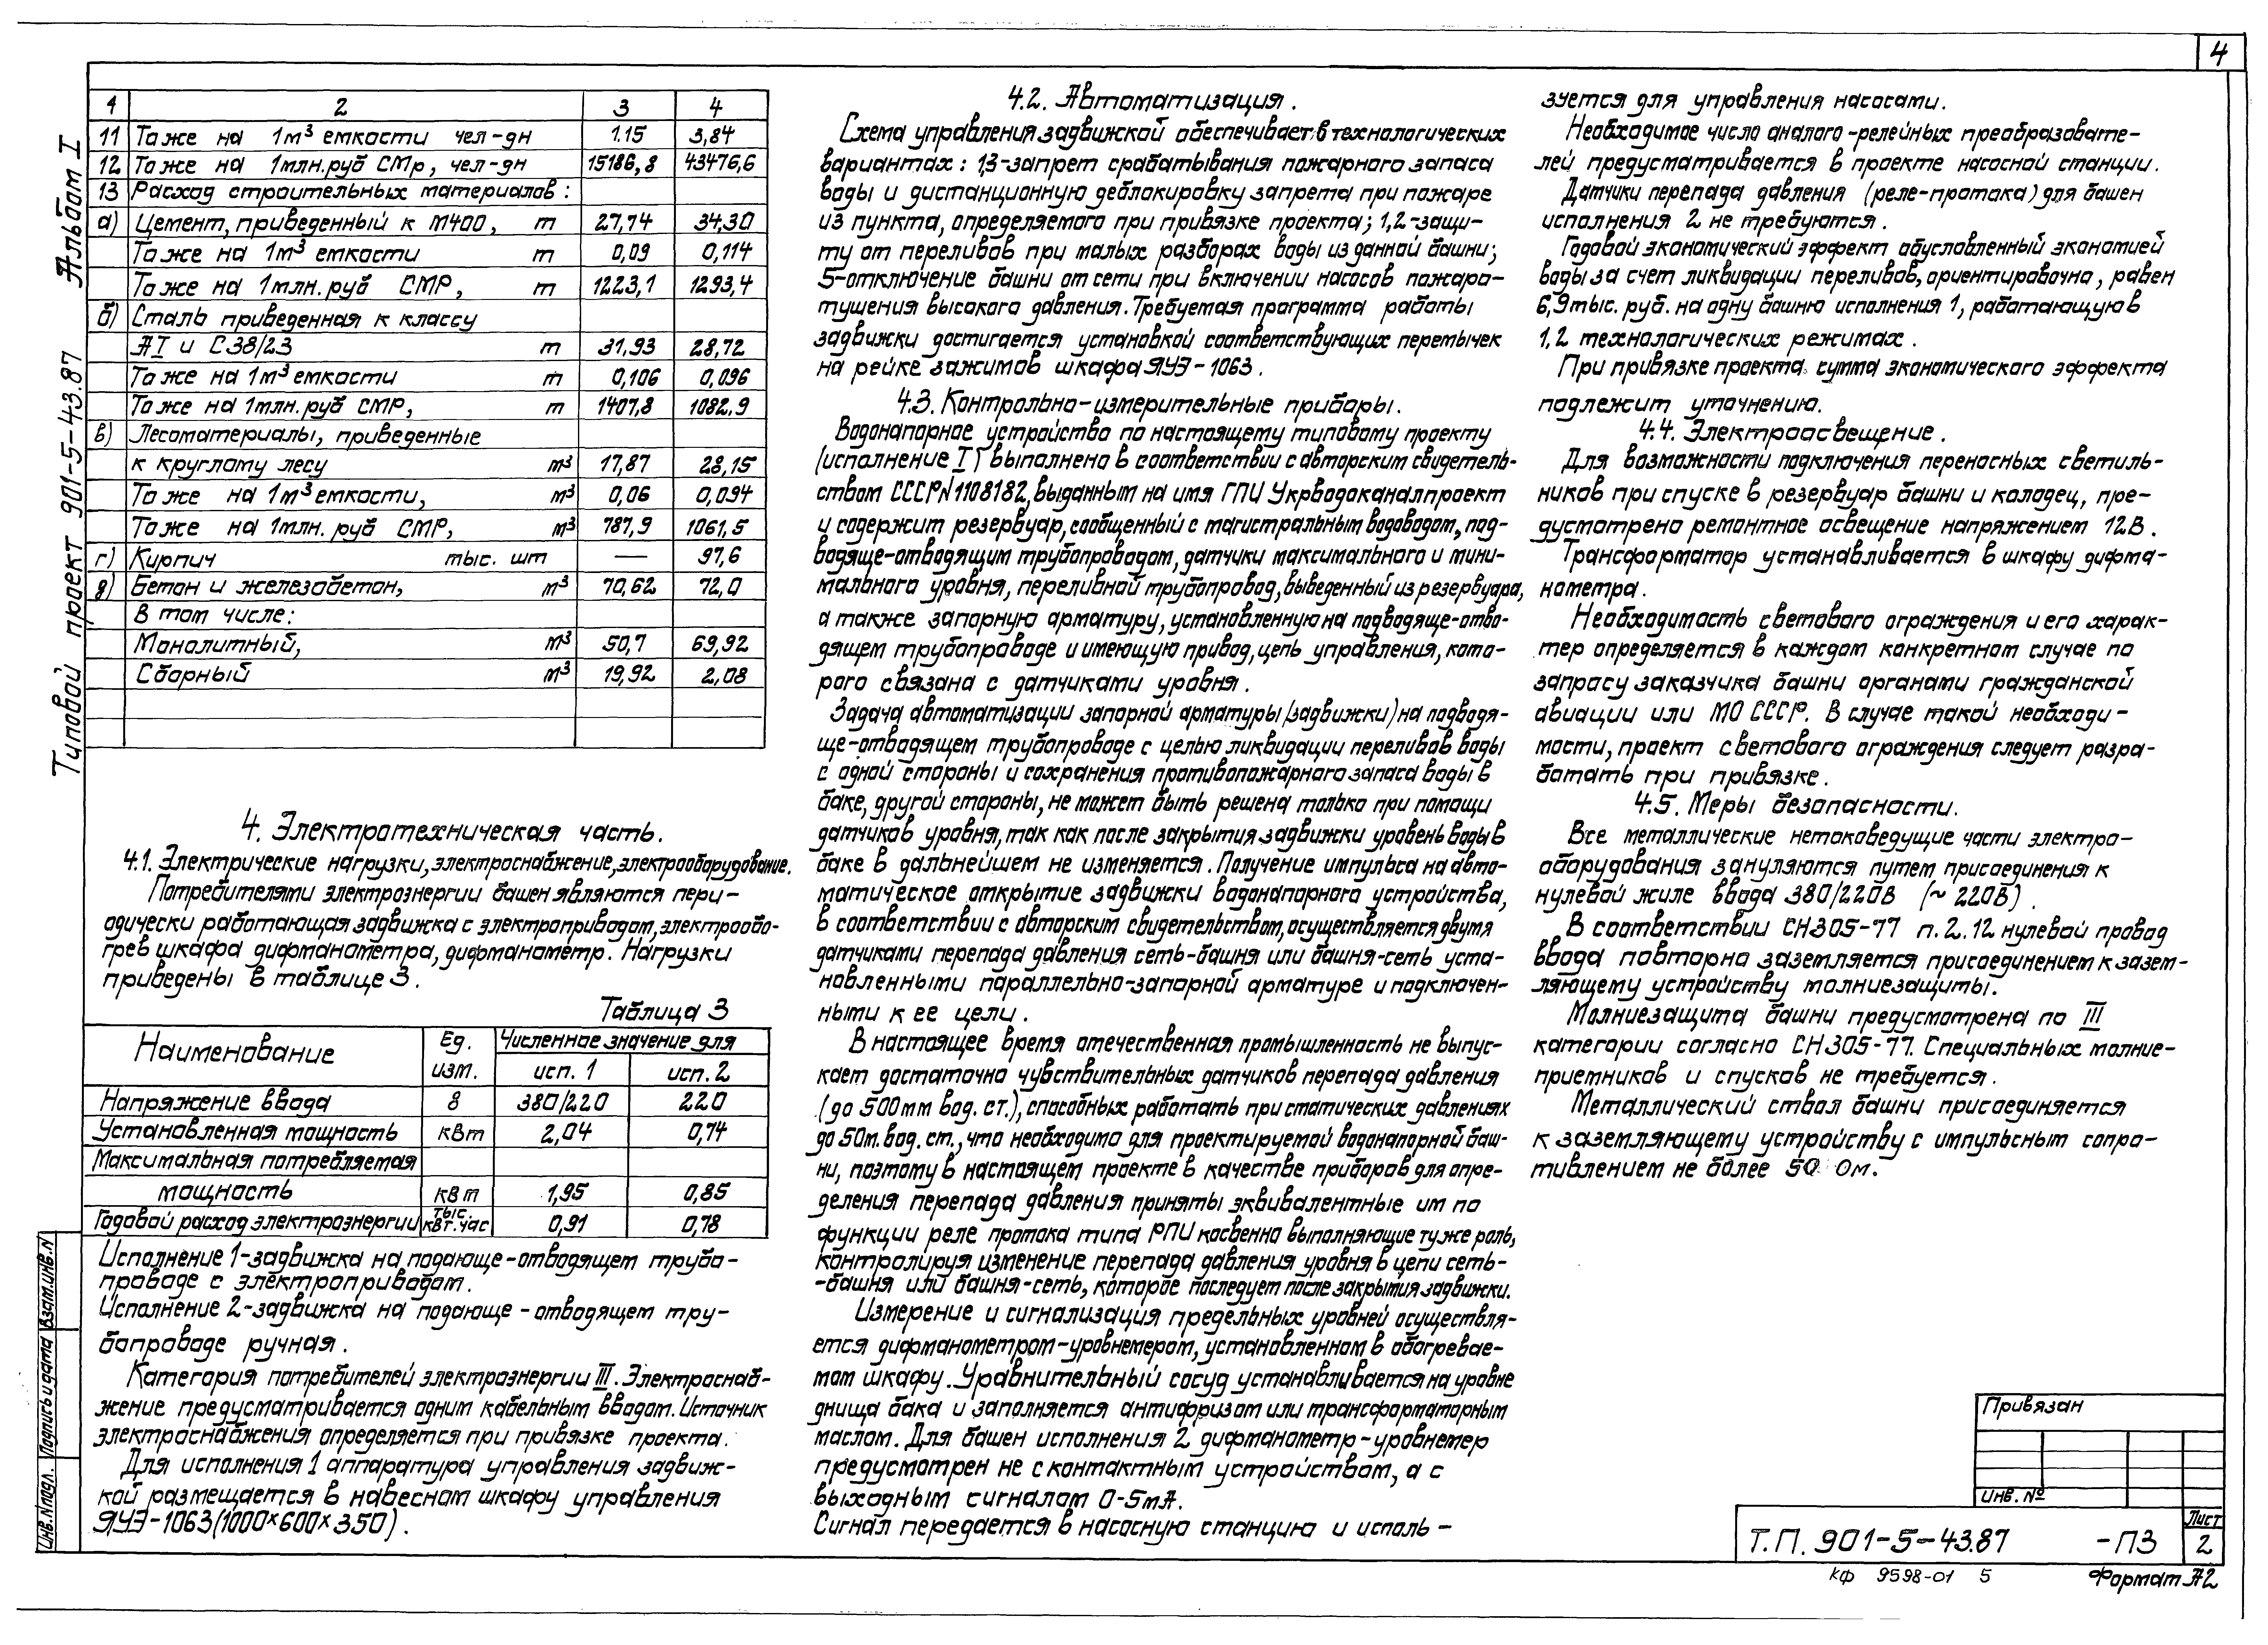 4
Типовой проект 901-5-43.87 Альбом I
1 2 3 4
11 То же на 1м³ емкости чел-дн 1.15 3,84
12 То же на 1млн.руб СМР, чел-дн 15186,8 43476,6
13 Расход строительных материалов:
а) Цемент, приведенный к М400, т 27,74 34.30
То же на 1м³ емкости т 0,09 0,114
То же на 1млн.руб СМР, т 1223,1 1293,4
б) Сталь приведенная к классу
АI и С38/23 т 31,93 28,72
То же на 1м³ емкости т 0,106 0,096
То же на 1млн.руб СМР, т 1407,8 1082,9
в) Лесоматериалы, приведенные
к круглому лесу м³ 17,87 28,15
То же на 1м³ емкости, м³ 0,06 0,094
То же на 1млн. руб СМР, м³ 787,9 1061,5
г) Кирпич тыс. шт — 97,6
д) Бетон и железобетон, м³ 70,62 72,0
В том числе:
Монолитный, м³ 50,7 69,92
Сборный м³ 19,92 2,08
4. Электротехническая часть.
4.1. Электрические нагрузки, электроснабжение, электрооборудование.
Потребителями электроэнергии башен являются пери-
одически работающая задвижка с электроприводом, электрообо-
грев шкафа дифманометра, дифманометр. Нагрузки
приведены в таблице 3.
Таблица 3
Наименование Ед. изм. Численное значение для
исп. 1 исп. 2
Напряжение ввода В 380/220 220
Установленная мощность кВт 2,04 0,74
Максимальная потребляемая
мощность кВт 1,95 0,85
Годовой расход электроэнергии тыс. кВт.час 0,91 0,78
Исполнение 1-задвижка на подающе-отводящем трубо-
проводе с электроприводом.
Исполнение 2-задвижка на подающе-отводящем тру-
бопроводе ручная.
Категория потребителей электроэнергии III. Электроснаб-
жение предусматривается одним кабельным вводом. Источник
электроснабжения определяется при привязке проекта.
Для исполнения 1 аппаратура управления задвиж-
кой размещается в навесном шкафу управления
ЯУЭ-1063(1000×600×350).
4.2. Автоматизация.
Схема управления задвижкой обеспечивает: в технологических
вариантах: 1,3-запрет срабатывания пожарного запаса
воды и дистанционную деблокировку запрета при пожаре
из пункта, определяемого при привязке проекта; 1,2-защи-
ту от переливов при малых разборах воды из данной башни;
5-отключение башни от сети при включении насосов пожаро-
тушения высокого давления. Требуемая программа работы
задвижки достигается установкой соответствующих перемычек
на рейке зажимов шкафа ЯУЭ-1063.
4.3. Контрольно-измерительные приборы.
Водонапорное устройство по настоящему типовому проекту
(исполнение I) выполнено в соответствии с авторским свидетель-
ством СССР N1108182, выданным на имя ГПИ Укрводоканалпроект
и содержит резервуар, сообщенный с магистральным водоводом, под-
водяще-отводящим трубопроводом, датчики максимального и мини-
мального уровня, переливной трубопровод, выведенный из резервуара,
а также запорную арматуру, установленную на подводяще-отво-
дящем трубопроводе и имеющую привод, цепь управления, кото-
рого связана с датчиками уровня.
Задача автоматизации запорной арматуры (задвижки) на подводя-
ще-отводящем трубопроводе с целью ликвидации переливов воды
с одной стороны и сохранения противопожарного запаса воды в
баке, другой стороны, не может быть решена только при помощи
датчиков уровня, так как после закрытия задвижки уровень воды в
баке в дальнейшем не изменяется. Получение импульса на авто-
матическое открытие задвижки водонапорного устройства,
в соответствии с авторским свидетельством, осуществляется двумя
датчиками перепада давления сеть-башня или башня-сеть уста-
новленными параллельно-запорной арматуре и подключен-
ными к ее цепи.
В настоящее время отечественная промышленность не выпус-
кает достаточно чувствительных датчиков перепада давления
(до 500мм вод. ст.), способных работать при статических давлениях
до 50м. вод. ст., что необходимо для проектируемой водонапорной баш-
ни, поэтому в настоящем проекте в качестве приборов для опре-
деления перепада давления приняты эквивалентные им по
функции реле протока типа РПИ косвенно выполняющие ту же роль,
контролируя изменение перепада давления уровня в цепи сеть-
-башня или башня-сеть, которое последует после закрытия задвижки.
Измерение и сигнализация предельных уровней осуществля-
ется дифманометром-уровнемером, установленном в обогревае-
мом шкафу. Уравнительный сосуд устанавливается на уровне
днища бака и заполняется антифризом или трансформаторным
маслом. Для башен исполнения 2 дифманометр-уровнемер
предусмотрен не с контактным устройством, а с
выходным сигналом 0-5мА.
Сигнал передается в насосную станцию и исполь-
зуется для управления насосами.
Необходимое число аналого-релейных преобразовате-
лей предусматривается в проекте насосной станции.
Датчики перепада давления (реле-протока) для башен
исполнения 2 не требуются.
Годовой экономический эффект обусловленный экономией
воды за счет ликвидации переливов, ориентировочно, равен
6,9тыс. руб. на одну башню исполнения 1, работающую в
1,2 технологических режимах.
При привязке проекта сумма экономического эффекта
подлежит уточнению.
4.4. Электроосвещение.
Для возможности подключения переносных светиль-
ников при спуске в резервуар башни и колодец, пре-
дусмотрено ремонтное освещение напряжением 12В.
Трансформатор устанавливается в шкафу дифма-
нометра.
Необходимость светового ограждения и его харак-
тер определяется в каждом конкретном случае по
запросу заказчика башни органами гражданской
авиации или МО СССР. В случае такой необходи-
мости, проект светового ограждения следует разра-
ботать при привязке.
4.5. Меры безопасности.
Все металлические нетоковедущие части электро-
оборудования зануляются путем присоединения к
нулевой жиле ввода 380/220В (~220В).
В соответствии СН305-77 п.2.12 нулевой провод
ввода повторно заземляется присоединением к зазем-
ляющему устройству молниезащиты.
Молниезащита башни предусмотрена по III
категории согласно СН305-77. Специальных молние-
приемников и спусков не требуется.
Металлический ствол башни присоединяется
к заземляющему устройству с импульсным сопро-
тивлением не более 50 Ом.
Привязан
Инв. №
Т.П. 901-5-43.87 -ПЗ
Лист
2
КФ 9598-01 5
Формат А2
Инв.Nподл. Подпись и дата Взам.инв.N